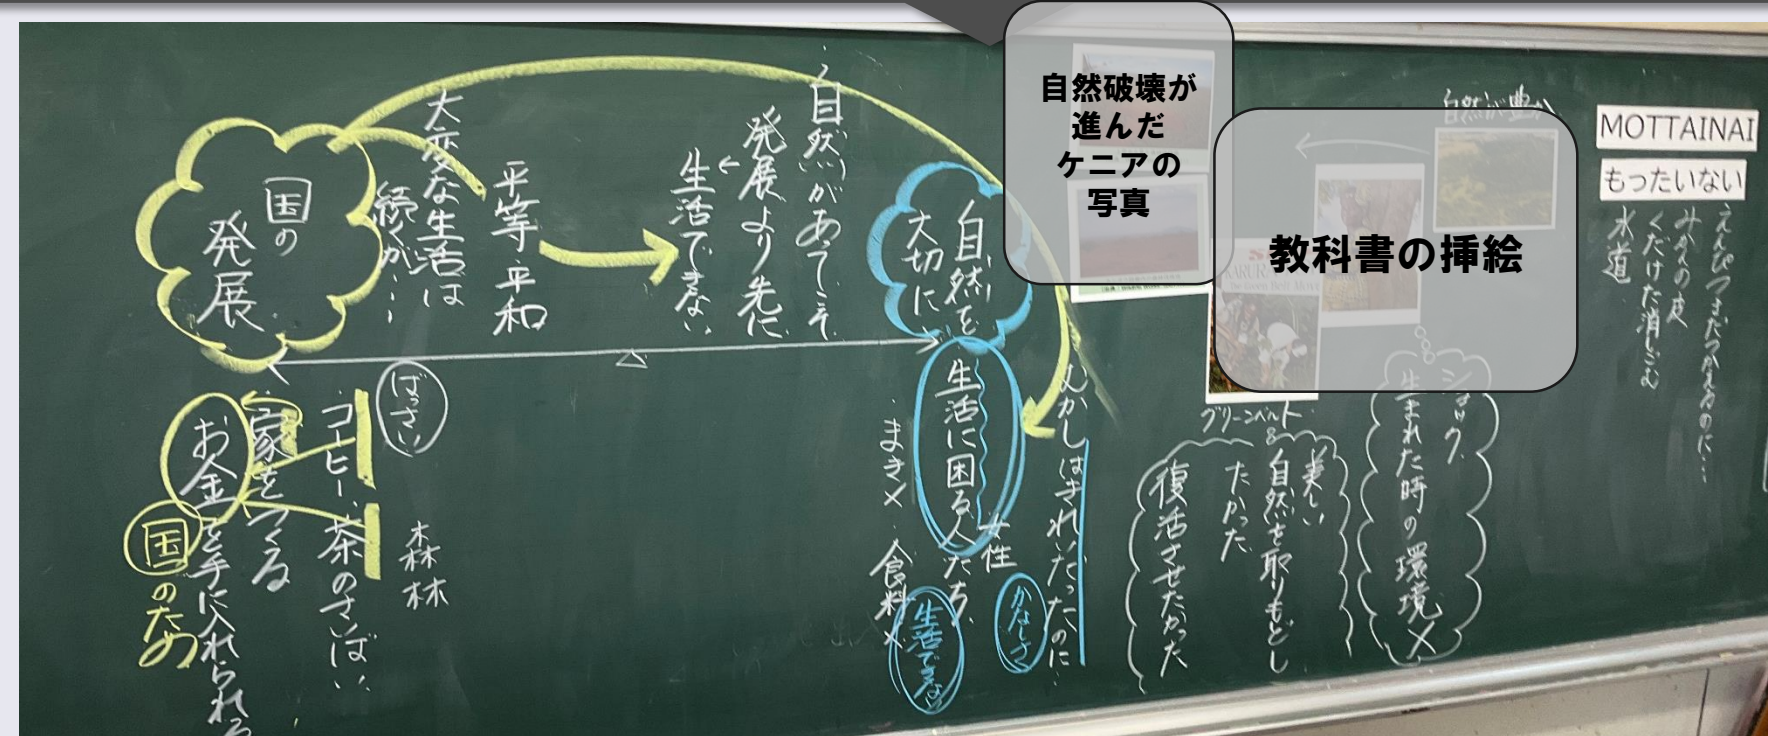 MOTTAINAI
もったいない
えんぴつまだつかえるのに…
みかんの皮
くだけた消しゴム
水道
自然が豊か
教科書の挿絵
自然破壊が
進んだ
ケニアの
写真
ショック
生まれた時の環境×
グリーンベルト
美しい
自然を取りもどし
たかった
復活させたかった
むかしはきれいだったのに…
かなしさ
女性
自然を
大切に
生活に困る人たち
生活できない
・まき×
・食料×
・自然があってこそ
発展より先に
生活できない
平等・平和
大変な生活は
続くが…
国の
発展
ばっさい
森林
コーヒー、茶のさいばい
家をつくる
お金を手に入れられる
国のため